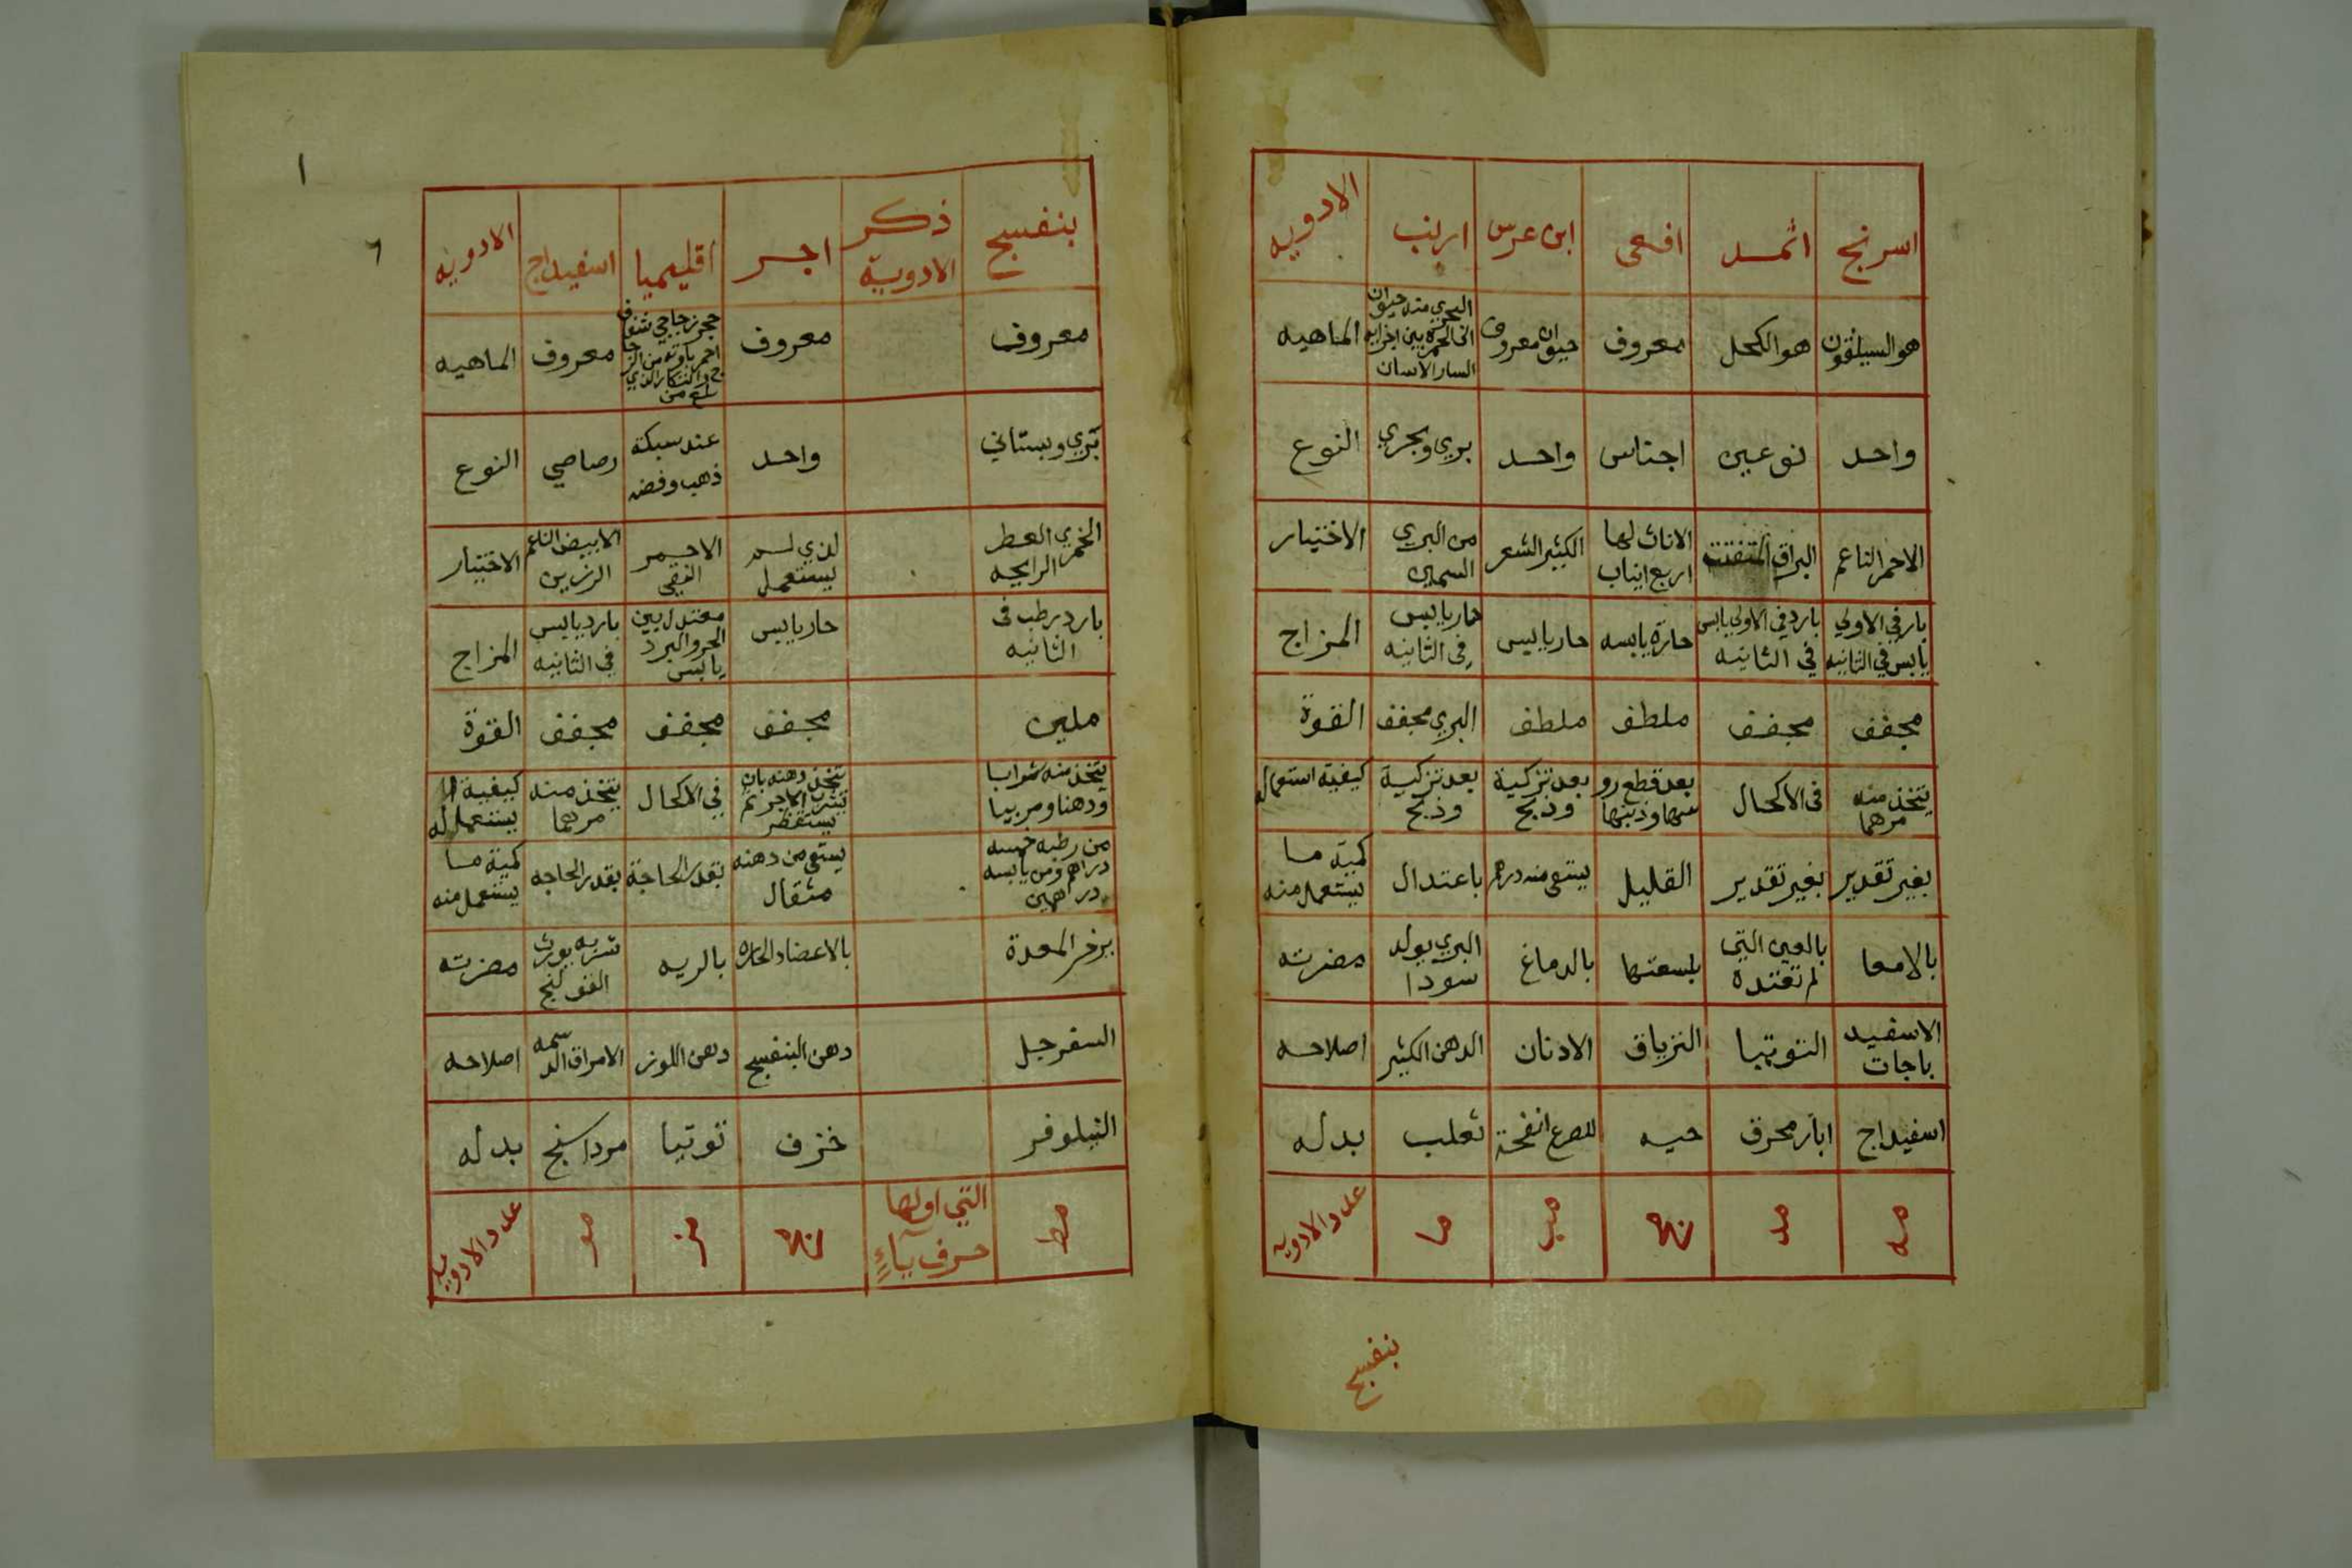 اسرنج اثمد افعى ابن عرس ارنب الادويه
هو السيلقون هو الكحل معروف حيوان معروف الماهيه
واحد نوعين اجناس واحد بري وبحري النوع
الاحمر الناعم البراق المتفتت الاناث لها اربع انياب الكثير الشعر من البري السمين الاختيار
بارد في الاولي يابس في الثانيه بارد في الاولي يابس في الثانيه حاره يابسه حار يابس حار يابس في الثانيه المزاج
مجفف مجفف ملطف ملطف البري مجفف القوة
يتخذ منه مرهما في الاكحال بعد قطع روسها وذنبها بعد تزكية وذبح بعد تزكية وذبح كيفية استعماله
بغير تقدير بغير تقدير القليل يستقى منه درهم باعتدال كمية ما يستعمل منه
بالامعا بالعين التي لم تعتده بلسعتها بالدماغ البري يولد سودا مضرته
الاسفيد باجات التوتيا الترياق الادنان الدهن الكثير اصلاحه
اسفيداج ابار محرق حيه للصرع انفحة ثعلب بدله
مه مد مج مب ما عدد الادويه
بنفسج
٦
ا
بنفسج ذكر الادوية اجر اقليميا اسفيداج الادويه
معروف معروف معروف الماهيه
بري وبستاني واحد عند سبكه ذهب وفضه رصاصي النوع
الخمري العطر الرايحه لذي لم يستعمل الاحمر النقي الابيض الناعم الرزين الاختيار
بارد رطب في الثانيه حار يابس معتدل بين الحر والبرد يابس بارد يابس في الثانيه المزاج
ملين مجفف مجفف مجفف القوة
يتخذ منه شرابا ودهنا ومربيا يتخذ دهنه بان الاجر ثم يستقطر في الاكحال يتخذ منه مرهما كيفية ا يستعماله
من رطبه خمسه دراهم ومن يابسه درهمين يستقى من دهنه مثقال بقدر الحاجة بقدر الحاجه كمية ما يستعمل منه
يرخي المعدة بالاعضاء الحاره بالريه شربه يورث القولنج مضرته
السفرجل دهن البنفسج دهن اللوز الامراق الدسمه اصلاحه
النيلوفر خزف توتيا مرداسنج بدله
مط التي اولها حرف باء مح مز مو عدد الادويه